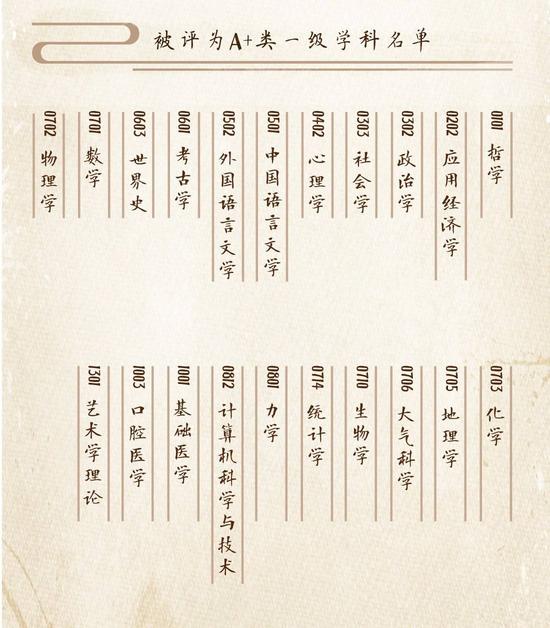 被评为A+类一级学科名单
0101 哲学
0202 应用经济学
0302 政治学
0303 社会学
0402 心理学
0501 中国语言文学
0502 外国语言文学
0601 考古学
0603 世界史
0701 数学
0702 物理学
0703 化学
0705 地理学
0706 大气科学
0710 生物学
0714 统计学
0801 力学
0812 计算机科学与技术
1001 基础医学
1003 口腔医学
1301 艺术学理论